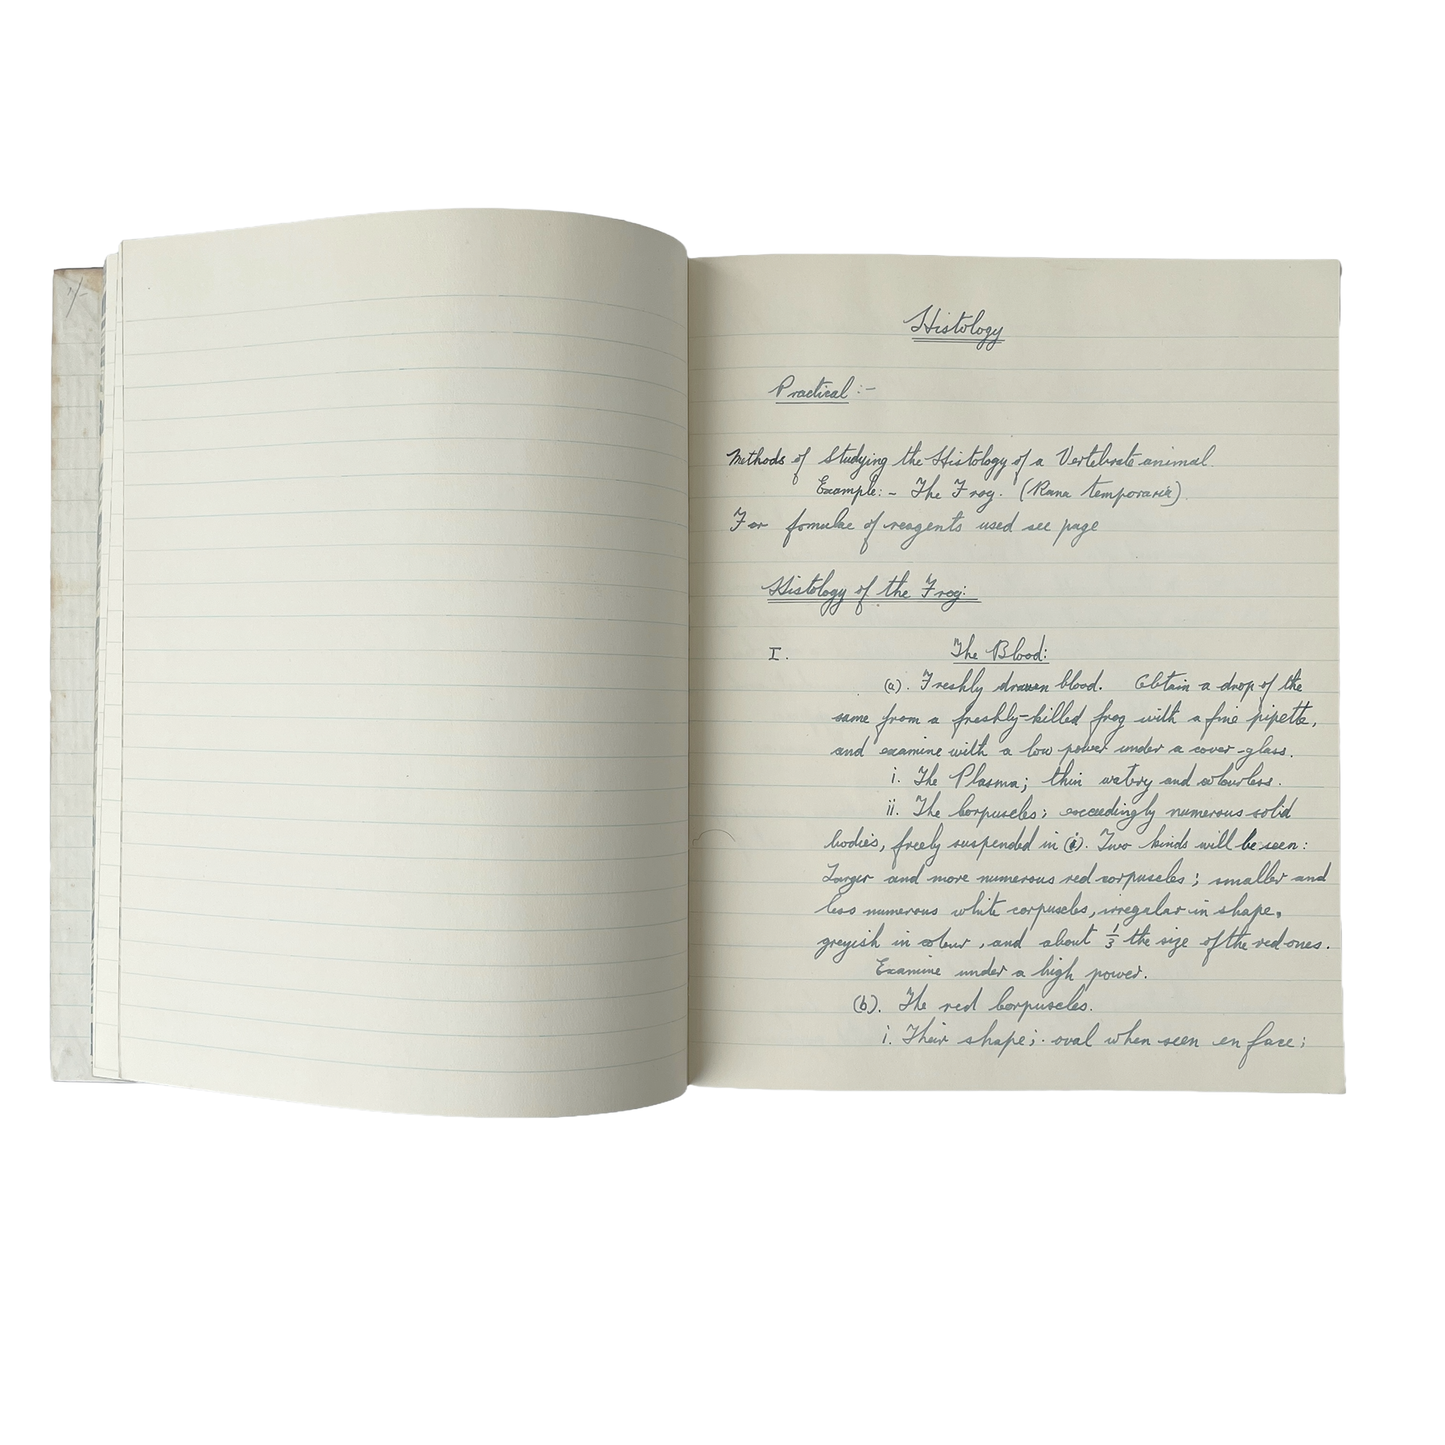 1/-
Histology
Practical :-
Methods of Studying the Histology of a Vertebrate animal.
Example: - The Frog. (Rana temporaria).
For fomulae of reagents used see page
Histology of the Frog:
I. The Blood:
(a). Freshly drawn blood. Obtain a drop of the
same from a freshly-killed frog with a fine pipette,
and examine with a low power under a cover-glass.
i. The Plasma; thin watery and colourless.
ii. The Corpuscles; exceedingly numerous solid
bodies, freely suspended in (i). Two kinds will be seen:
Larger and more numerous red corpuscles; smaller and
less numerous white corpuscles, irregular in shape,
greyish in colour, and about 1/3 the size of the red ones.
Examine under a high power.
(b). The red Corpuscles.
i. Their shape; oval when seen en face;